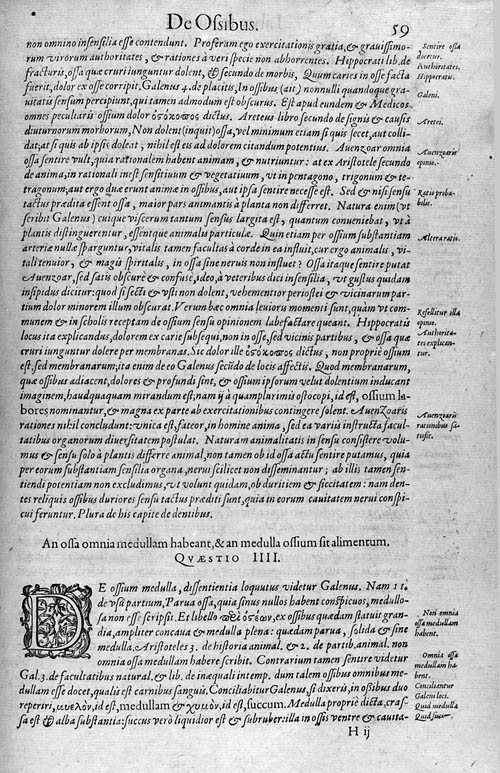 De Ossibus.
59
non omnino insensilia esse contendunt. Proferam ego exercitationis gratia, & grauissimo-
rum virorum authoritates, & rationes à veri specie non abhorrentes. Hippocrati lib. de
fracturis, ossa quæ cruri iunguntur dolent, & secundo de morbis, Quum caries in osse facta
fuerit, dolor ex osse corripit. Galenus 4. de placitis, In ossibus (ait) nonnulli quandoque gra-
uitatis sensum percipiunt, qui tamen admodum est obscurus. Est apud eundem & Medicos
omnes peculiaris ossium dolor ὀσόκοπος dictus. Areteus libro secundo de signis & causis
diuturnorum morborum, Non dolent (inquit) ossa, vel minimum etiam si quis secet, aut colli-
dat: at si quis ab ipsis doleat, nihil est eis ad dolorem citandum potentius. Auenzoar omnia
ossa sentire vult, quia rationalem habent animam, & nutriuntur: at ex Aristotele secundo
de anima, in rationali inest sensitiuum & vegetatiuum, vt in pentagono, trigonum & te-
tragonum; aut ergo duæ erunt animæ in ossibus, aut ipsa sentire necesse est. Sed & nisi sensu
tactus prædita essent ossa, maior pars animantis à planta non differret. Natura enim (vt
scribit Galenus) cuique viscerum tantum sensus largita est, quantum conueniebat, vt à
plantis distinguerentur, essentque animalis particulæ. Quin etiam per ossium substantiam
arteriæ nullæ sparguntur, vitalis tamen facultas à corde in ea influit, cur ergo animalis, vi-
tali tenuior, & magis spiritalis, in ossa sine neruis non influet? Ossa itaque sentire putat
Auenzoar, sed satis obscurè & confusè, ideo, à veteribus dici insensilia, vt gustus quidam
insipidus dicitur: quod si secti & vsti non dolent, vehementior periostei & vicinarum par-
tium dolor minorem illum obscurat. Verum hæc omnia leuioris momenti sunt, quàm vt com-
munem & in scholis receptam de ossium sensu opinionem labefactare queant. Hippocratis
locus ita explicandus, dolorem ex carie subsequi, non in osse, sed vicinis partibus, & ossa quæ
cruri iunguntur dolere per membranas. Sic dolor ille ὀσόκοπος dictus, non propriè ossium
est, sed membranarum; ita enim de eo Galenus secūdo de locis affectis. Quod membranarum,
quæ ossibus adiacent, dolores & profundi sint, & ossium ipsorum velut dolentium inducant
imaginem, haudquaquam mirandum est; nam ij à quamplurimis ostocopi, id est, ossium la-
bores nominantur, & magna ex parte ab exercitationibus contingere solent. Auenzoaris
rationes nihil concludunt: vnica est, fateor, in homine anima, sed ea variis instructa facul-
tatibus organorum diuersitatem postulat. Naturam animalitatis in sensu consistere volu-
mus & sensu solo à plantis differre animal, non tamen ob id ossa actu sentire putamus, quia
per eorum substantiam sensilia organa, nerui scilicet non disseminantur; ab illis tamen sen-
tiendi potentiam non excludimus, vt volunt quidam, ob duritiem & siccitatem: nam den-
tes reliquis ossibus duriores sensu tactus præditi sunt, quia in eorum cauitatem nerui conspi-
cui feruntur. Plura de his capite de dentibus.
Sentire ossa
Authoritates.
Hippocratis
Galeni.
Aretei.
Auenzoaris
opinio.
Ratio proba-
bilis.
Altera ratio.
Refellitur illa
opinio.
Authorita-
tes explican-
tur.
Auenzoaris
rationibus sa-
tisfit.
An ossa omnia medullam habeant, & an medulla ossium sit alimentum.
QVÆSTIO IIII.
DE ossium medulla, dissentientia loquutus videtur Galenus. Nam 11.
de vsu partium, Parua ossa, quia sinus nullos habent conspicuos, medullo-
sa non esse scripsit. Et libello περὶ ὀστέων, ex ossibus quædam statuit gran-
dia, ampliter concaua & medulla plena: quædam parua, solida & sine
medulla. Aristoteles 3. de historia animal. & 2. de partib. animal. non
omnia ossa medullam habere scribit. Contrarium tamen sentire videtur
Gal. 3. de facultatibus natural. & lib. de inæquali intemp. dum talem ossibus omnibus me-
dullam esse docet, qualis est carnibus sanguis. Conciliabitur Galenus, si dixeris, in oßibus duo
reperiri, μυελὸν, id est, medullam & χυμὸν, id est, succum. Medulla propriè dicta, cras-
sa est & alba substantia: succus verò liquidior est & subruber: illa in ossis ventre & cauita-
Non omnia
ossa medullam
habent.
Omnia ossa
medullam ha-
bent.
Conciliantur
Galeni loci.
Quid medulla
Quid succus.
H ij